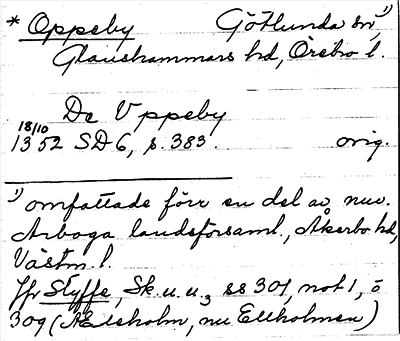 * Oppeby Götlunda sn,¹⁾
Glanshammars hd, Örebro l.
De Vppeby
18/10
1352 SD 6, s. 383. orig.
¹⁾ omfattade förr en del av nuv.
Arboga landsförsaml., Åkerbo hd,
Västm. l.
Jfr Styffe, Sk. u. u.3 ss 301, not 1, o
309 (Æleholm, nu Ellholmen)